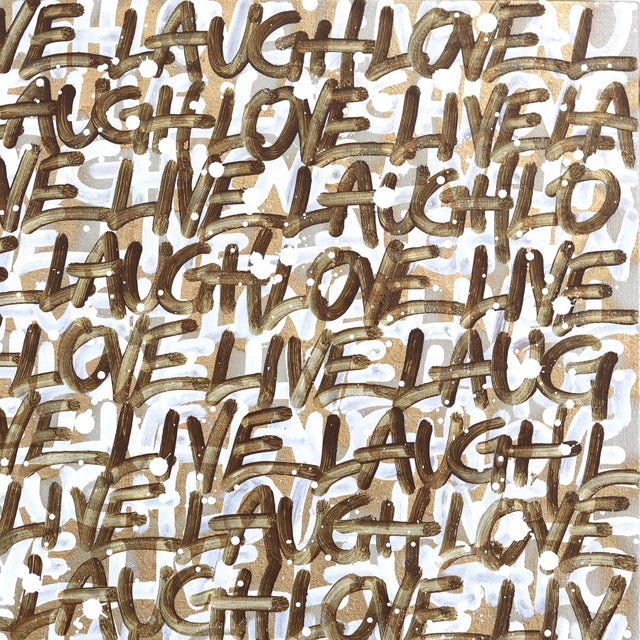 VE LAUGH LOVE L
AUGH LOVE LIVE LA
VE LIVE LAUGH LO
LAUGH LOVE LIVE
LOVE LIVE LAUG
VE LIVE LAUGH L
LIVE LAUGH LOVE
LAUGH LOVE LIV